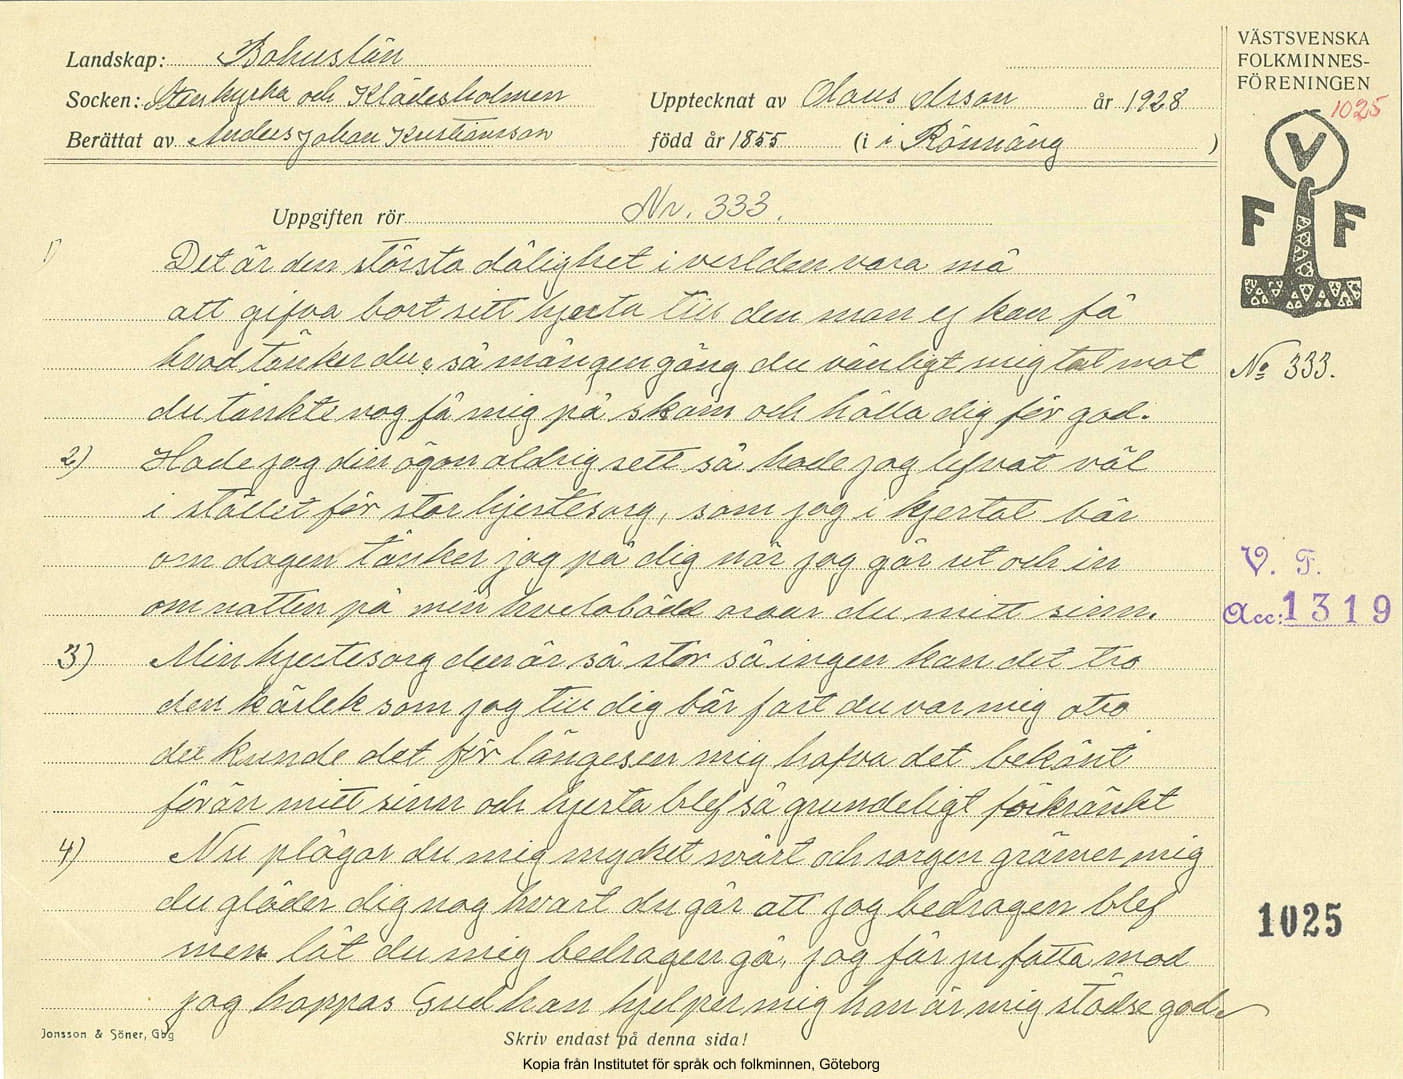 Landskap: Bohuslän
Socken: Stenkyrka och Klädesholmen
Upptecknat av Olaus Olsson år 1928
Berättat av Anders Johan Kristiansson
född år 1855 (i i Rönnäng )
VÄSTSVENSKA
FOLKMINNES-
FÖRENINGEN
1025
V
F F
Uppgiften rör Nr. 333.
1) Det är den största dålighet i verlden vara må
att gifva bort sitt hjerta till den man ej kan få
hvad tänker du, så mången gång du vänligt mig tal mot
du tänkte nog få mig på skam och hålla dig för god.
2) Hade jag din ögon aldrig sett så hade jag lefvat väl
i stället för stor hjertesorg, som jag i hjertat bär
om dagen tänker jag på dig när jag går ut och in
om natten på min hvilobädd oroar du mitt sinn.
3) Min hjertesorg den är så stor så ingen kan det tro
den kärlek som jag till dig bär fast du var mig otro
du kunde det för längesen mig hafva det bekänt
förän mitt sinn och hjerta blef så grundeligt förkränkt
4) Nu plågar du mig mycket svårt och sorgen grämer mig
du gläder dig nog hvart du går att jag bedragen blef
men låt du mig bedragen gå, jag får ju fatta mod
jag hoppas Gud han hjelper mig han är mig städse god.
No 333.
V. F.
Acc: 1319
1025
Jonsson & Söner, Gbg
Skriv endast på denna sida!
Kopia från Institutet för språk och folkminnen, Göteborg